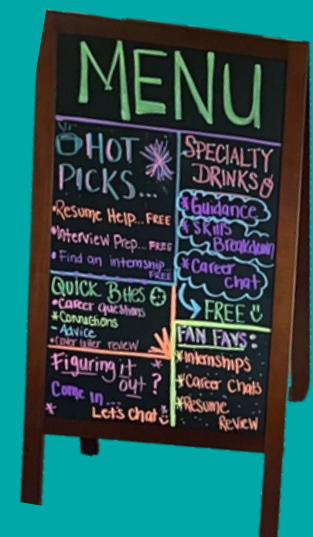 MENU
HOT
PICKS...
•Resume Help... FREE
•Interview Prep... FREE
•Find an internship...
FREE
QUICK BITES
•Career questions
*Connections
- Advice
•Cover letter review
Figuring it
out?
Come in...
Let's chat
SPECIALTY
DRINKS
*Guidance
*Skills
Breakdown
*Career
chat
FREE
FAN FAVS:
*Internships
*Career chats
*Resume
Review